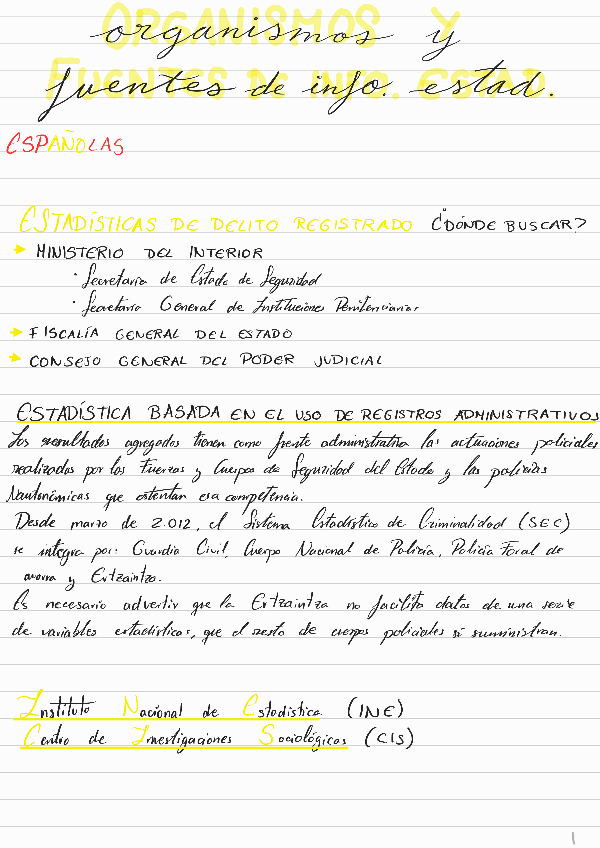 organismos y
fuentes de info. estad.
ESPAÑOLAS
ESTADÍSTICAS DE DELITO REGISTRADO ¿DÓNDE BUSCAR?
→ MINISTERIO DEL INTERIOR
· Secretaría de Estado de Seguridad
· Secretaría General de Instituciones Penitenciarias
→ FISCALÍA GENERAL DEL ESTADO
→ CONSEJO GENERAL DEL PODER JUDICIAL
ESTADÍSTICA BASADA EN EL USO DE REGISTROS ADMINISTRATIVOS
Los resultados agregados tienen como fuente administrativa las actuaciones policiales
realizadas por las Fuerzas y Cuerpos de Seguridad del Estado y las policías
autonómicas que ostentan esa competencia.
Desde marzo de 2.012, el Sistema Estadístico de Criminalidad (SEC)
se integra por: Guardia Civil, Cuerpo Nacional de Policía, Policía Foral de
avarra y Ertzaintza.
Es necesario advertir que la Ertzaintza no facilita datos de una serie
de variables estadísticas, que el resto de cuerpos policiales sí suministran.
Instituto Nacional de Estadística (INE)
Centro de Investigaciones Sociológicas (CIS)
1